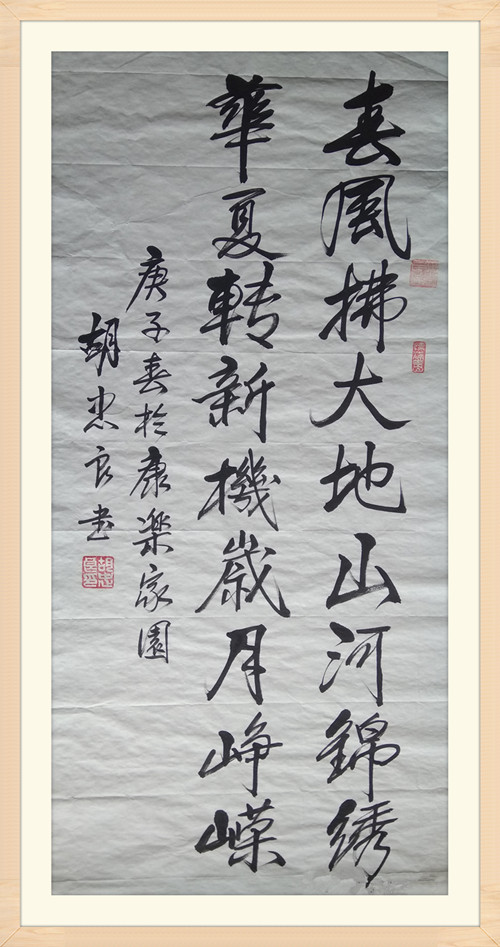 春風拂大地山河錦绣
華夏轉新機歲月崢嶸
庚子春於康樂家園
胡忠良书